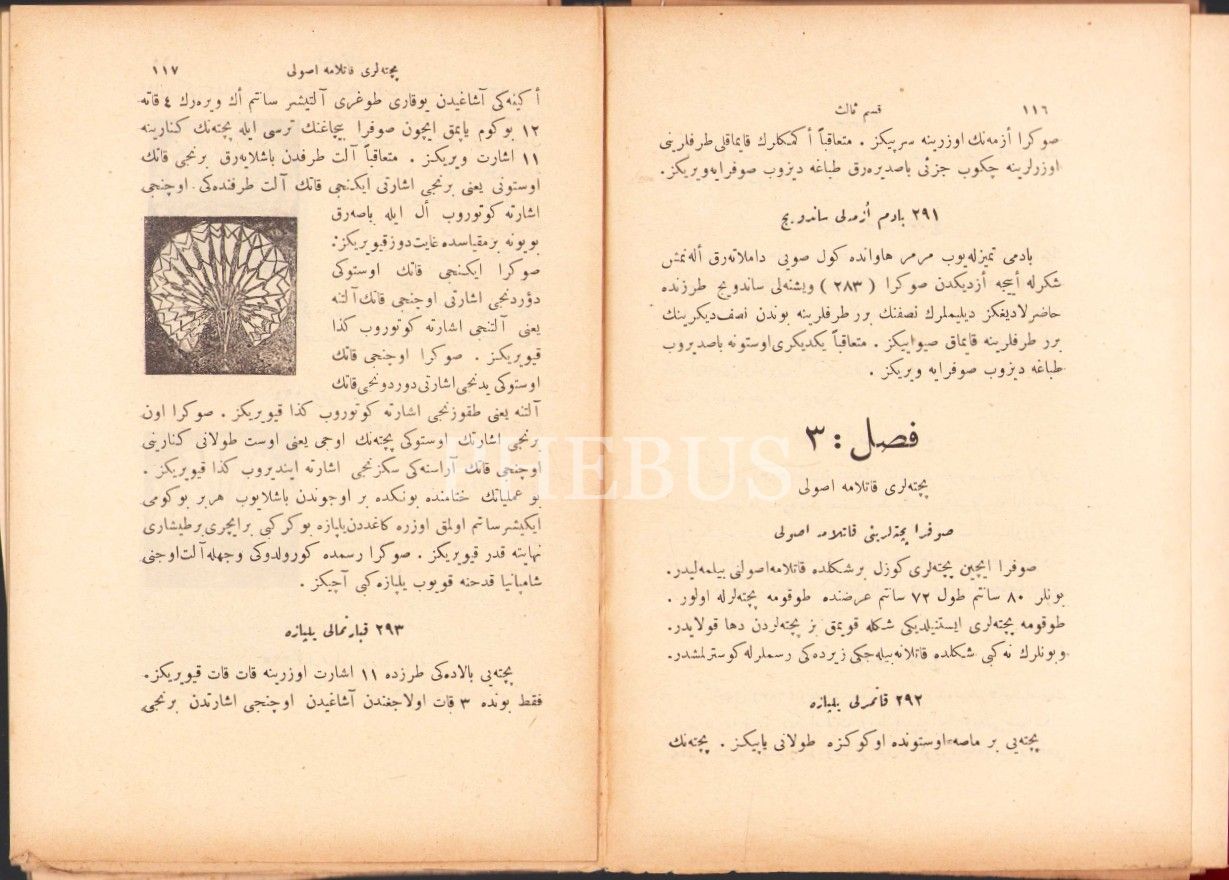 ١١٦
قسم ثالث
صوكرا أزمه‌نك اوزرينه سرپيكز . متعاقباً أكمكلرك قايماقلى طرفلرينى
اوزرلرينه چكوب جزئى باصديره‌رق طباغه ديزوب صوفرايه ويريكز.
٢٩١ بادم أزمه‌لى ساندويچ
بادمى تميزله‌يوب مرمر هاوانده كول صويى داملاته‌رق أله‌نمش
شكرله أييجه أزديكدن صوكرا ( ٢٨٣ ) ويشنه‌لى ساندويچ طرزنده
حاضرلاديغكز ديليملرك نصفنك برر طرفلرينه بوندن نصف ديكرينك
برر طرفلرينه قايماق صيوايكز . متعاقباً يكديكرى اوستونه باصديروب
طباغه ديزوب صوفرايه ويريكز .
فصل : ٣
پچته‌لرى قاتلامه اصولى
صوفرا پچته‌لرينى قاتلامه اصولى
صوفرا ايچين پچته‌لرى كوزل برشكلده قاتلامه اصولنى بيلمه‌ليدر.
بونلر ٨٠ سانتم طول ٧٢ سانتم عرضنده طوقومه پچته‌لرله اولور .
طوقومه پچته‌لرى ايستنيلديكى شكله قويمق بز پچته‌لردن دها قولايدر.
وبونلرك نه كبى شكلده قاتلانه‌بيله‌جكى زيرده‌كى رسملرله كوسترلمشدر.
٢٩٢ قانمرلى يلپازه
پچته‌يى بر ماصه اوستونده اوكوكزه طولانى ياپيكز . پچته‌نك
پچته‌لرى قاتلامه اصولى
١١٧
أكينه‌كى آشاغيدن يوقارى طوغرى آلتيشر سانتم أك ويره‌رك ٤ قاته
١٢ بوكوم ياپمق ايچون صوفرا بيچاغنك ترسى ايله پچته‌نك كنارينه
١١ اشارت ويريكز . متعاقباً آلت طرفدن باشلايه‌رق برنجى قاتك
اوستونى يعنى برنجى اشارتى ايكنجى قاتك آلت طرفنده‌كى اوچنجى
اشارته كوتوروب أل ايله باصه‌رق
بويونه بزمقياسده غايت دوز قيويريكز:
صوكرا ايكنجى قاتك اوستوكى
دؤردنجى اشارتى اوچنجى قاتك آلتنه
يعنى آلتنجى اشارته كوتوروب كذا
قيويريكز . صوكرا اوچنجى قاتك
اوستوكى يدنجى اشارتى دوردونجى قاتك
آلتنه يعنى طقوزنجى اشارته كوتوروب كذا قيويريكز . صوكرا اون
برنجى اشارتك اوستوكى پچته‌نك اوجى يعنى اوست طولانى كنارينى
اوچنجى قاتك آراسنه‌كى سكزنجى اشارته اينديروب كذا قيويريكز .
بو عملياتك ختامنده بونكده بر اوجوندن باشلايوب هربر بوكومى
ايكيشرسانتم اولمق اوزره كاغددن يلپازه بوكركبى برايچرى برطيشارى
نهايتنه قدر قيويريكز . صوكرا رسمده كورولدوكى وجهله آلت اوجنى
شامپانيا قدحنه قويوب يلپازه كبى آچيكز .
٢٩٣ قبارتمالى يلپازه
پچته‌يى بالاده‌كى طرزده ١١ اشارت اوزرينه قات قات قيويريكز.
فقط بونده ٣ قات اولاجغندن آشاغيدن اوچنجى اشارتدن برنجى
PHEBUS